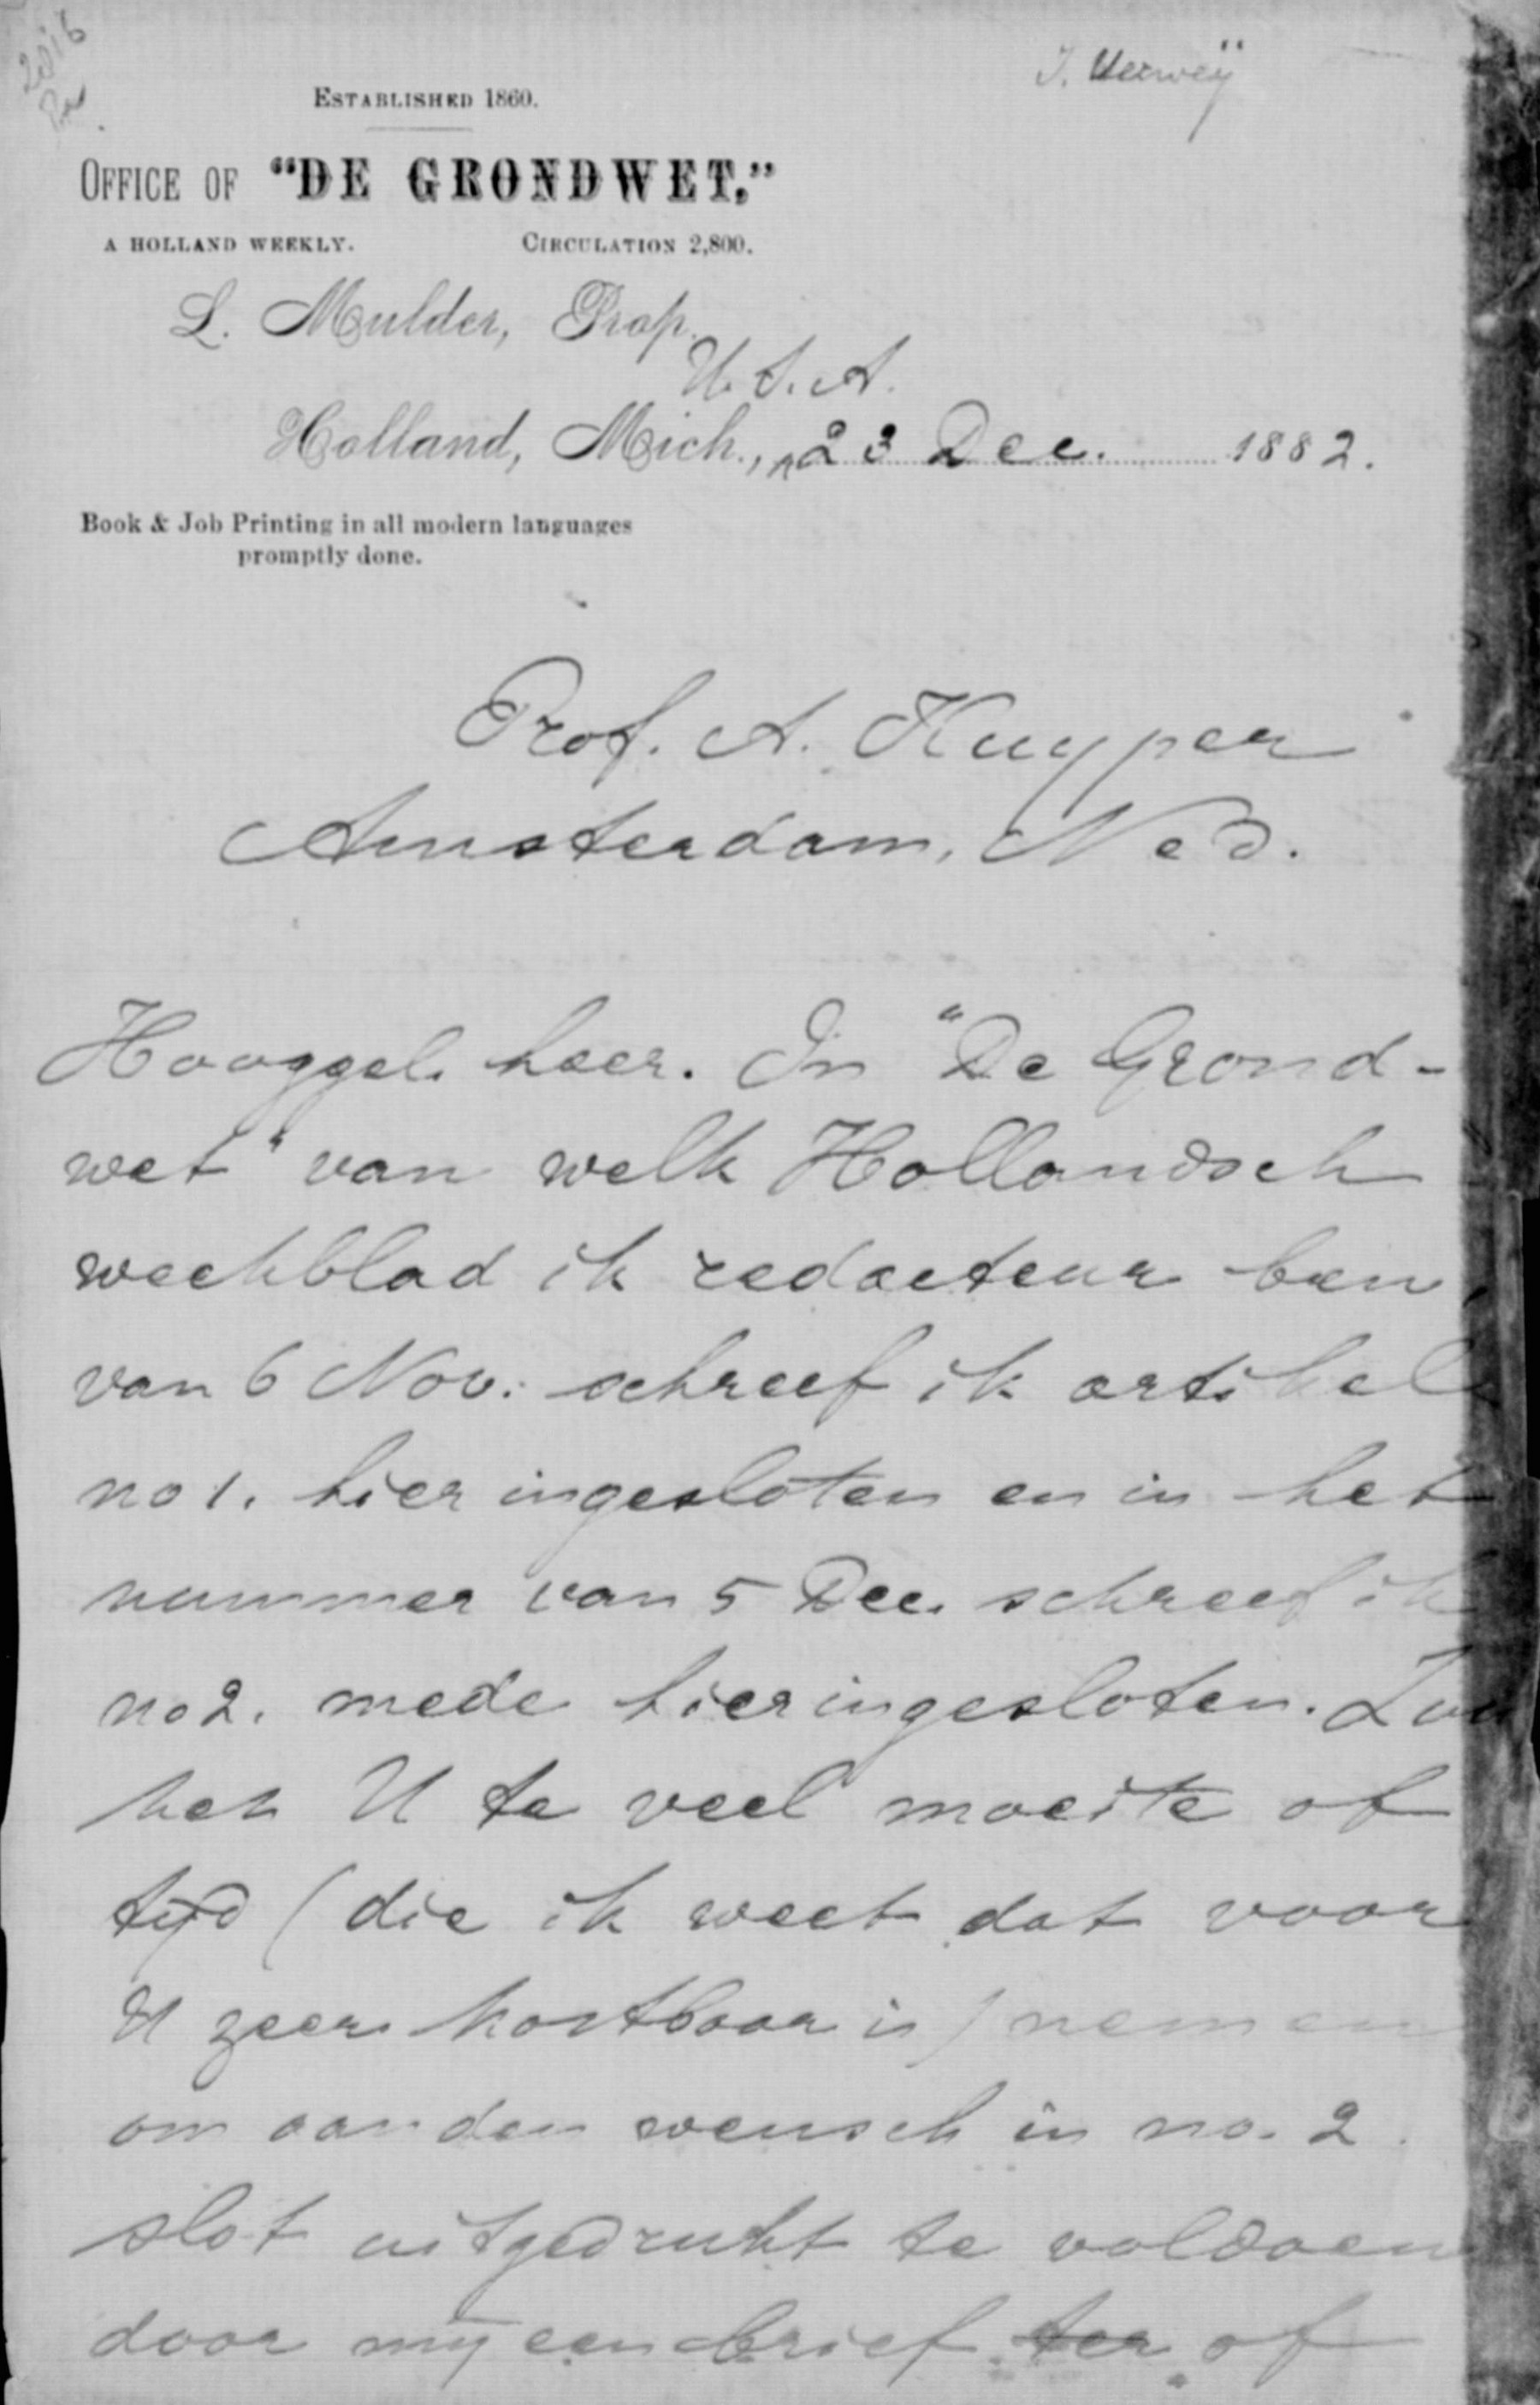 2016
J. Verweÿ
ESTABLISHED 1860.
OFFICE OF "DE GRONDWET,"
A HOLLAND WEEKLY. CIRCULATION 2,800.
L. Mulder, Prop.
U. S. A.
Holland, Mich., 23 Dec. 1882.
Book & Job Printing in all modern languages
promptly done.
Prof. A. Kuyper
Amsterdam, Ned.
Hooggel. heer. In "De Grond-
wet" van welk Hollandsch
weekblad ik redacteur ben,
van 6 Nov. schreef ik artikel
no 1. hier ingesloten en in het
nummer van 5 Dec. schreef ik
no 2. mede hier ingesloten. Zou
het U te veel moeite of
tijd (die ik weet dat voor
U zeer kostbaar is) nemen
om aan den wensch in no. 2
slot uitgedrukt te voldoen
door mij een brief ter of